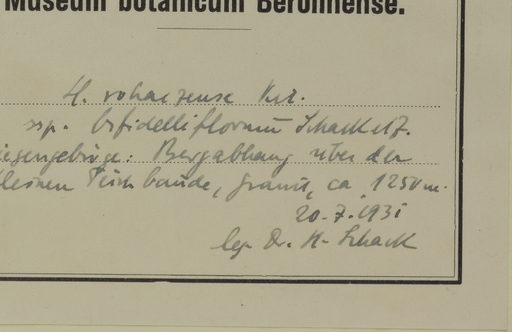 Museum botanicum Berolinense.
H. rohacsense Kit.
ssp. bifidelliflorum Schack et Z.
iesengebirge: Bergabhang über der
leinen Teichbaude, Granit, ca 1250 m.
20.7.1931
leg. Dr. H. Schack